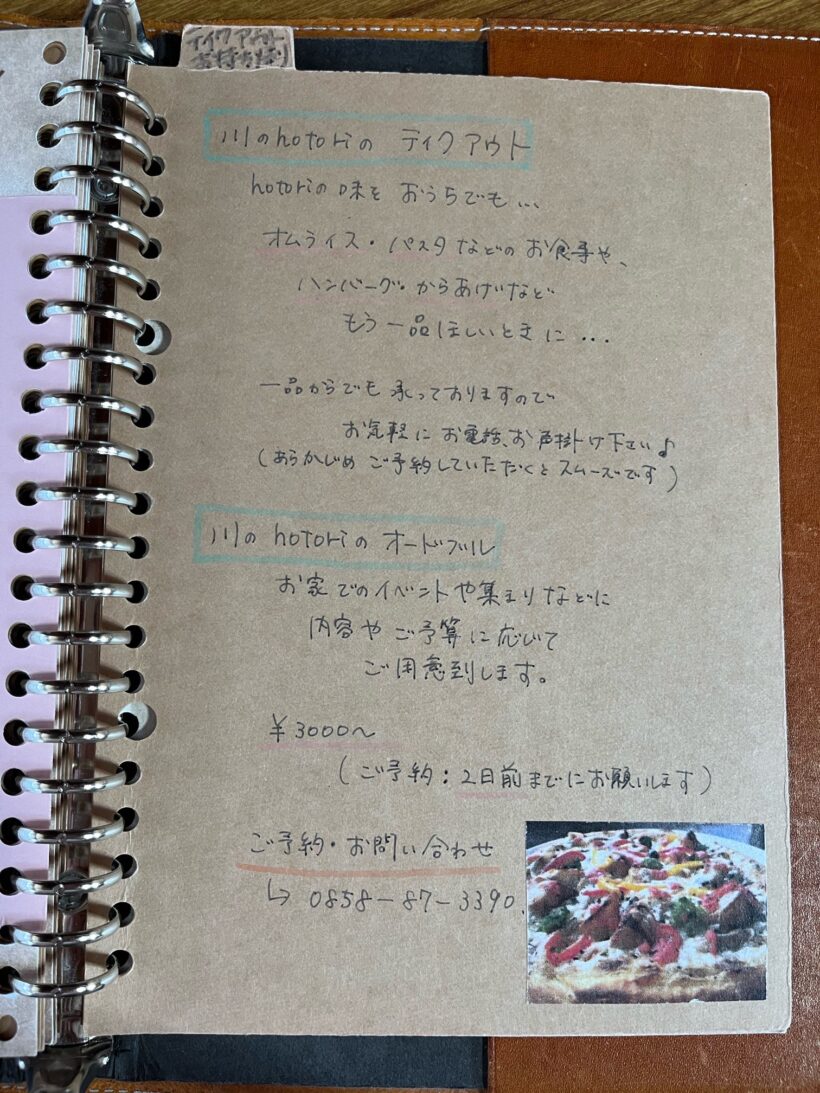 テイクアウト
お持ち帰り
川のhotoriの テイクアウト
hotoriの味を おうちでも...
オムライス・パスタなどの お食事や、
ハンバーグ・からあげなど
もう一品ほしいときに...
一品からでも 承っておりますので
お気軽に お電話、お声掛け下さい♪
(あらかじめ ご予約していただくと スムーズです)
川の hotoriの オードブル
お家でのイベントや集まりなどに
内容や ご予算に応じて
ご用意到します。
¥3000〜
(ご予約:2日前までにお願いします)
ご予約・お問い合わせ
↳ 0858-87-3390.